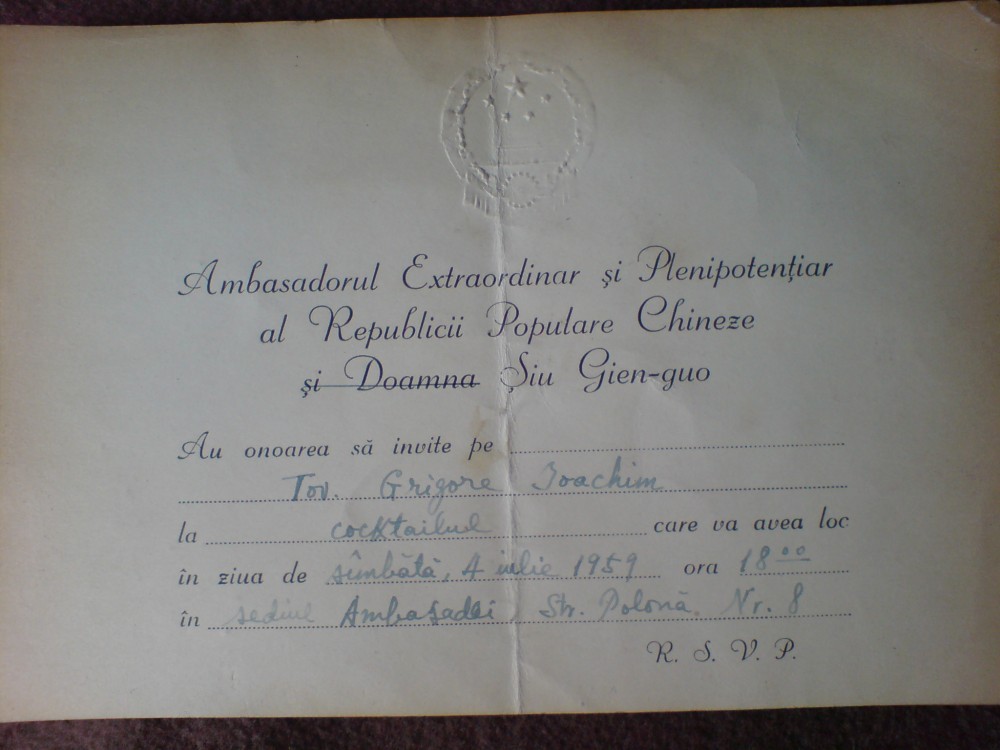 Ambasadorul Extraordinar și Plenipotențiar
al Republicii Populare Chineze
și Doamna Șiu Gien-guo
Au onoarea să invite pe
Tov. Grigore Ioachim
la cocktailul care va avea loc
în ziua de sîmbătă, 4 iulie 1959 ora 18 00
în sediul Ambasadei, Str. Polonă, Nr. 8
R. S. V. P.